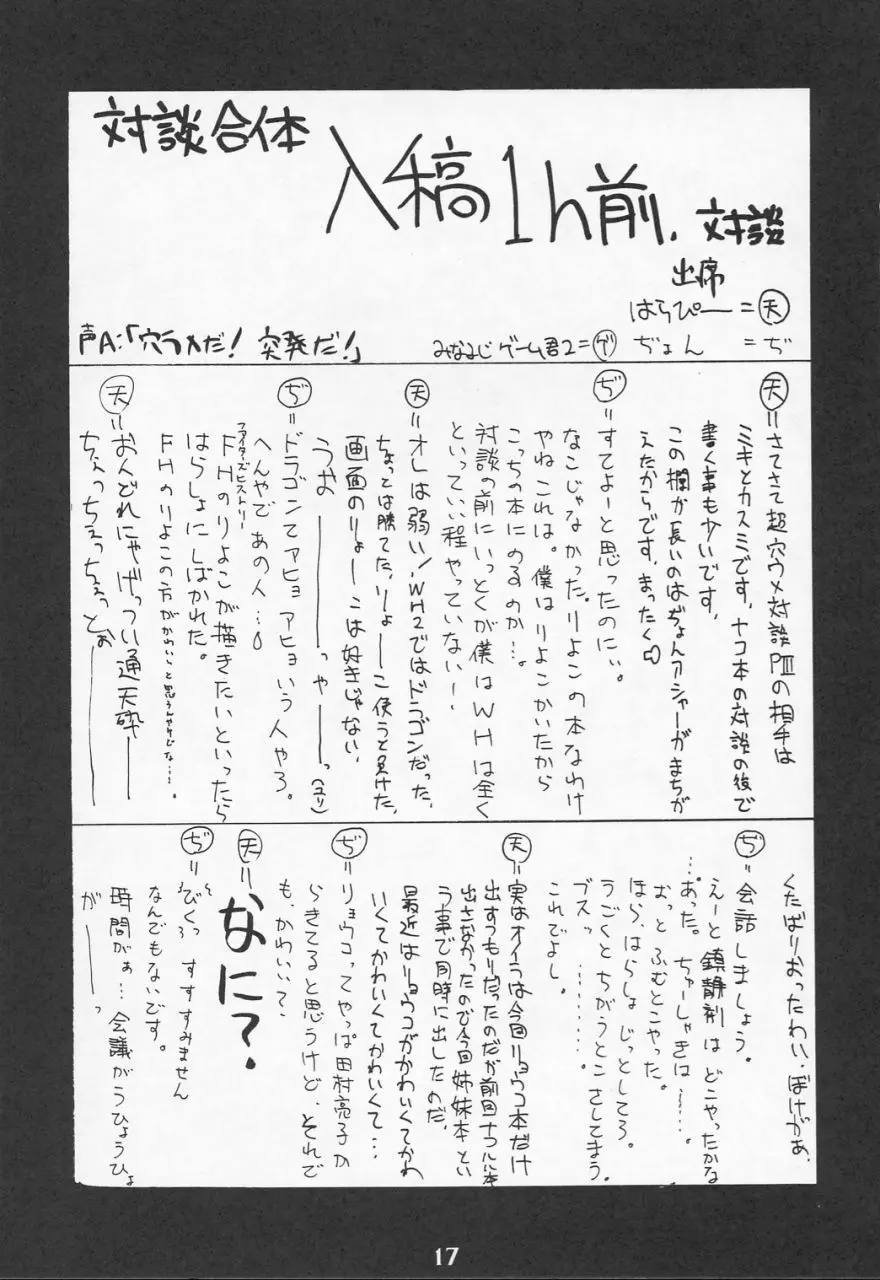 対談合体
入稿1h前.対談
出席
はらぴー=天
みなみじゲーム君2=ゲ ぢょん =ぢ
声A:「穴ラメだ! 突発だ!」
天=さてさて超穴ウメ対談PⅢの相手は
ミキとカスミです、ナコ本の対談の後で
書く事も少いです、
この欄が長いのはぢょんアシャーがまちが
えたからです、まったく
ぢ=すてよーと思ったのにぃ。
なこじゃなかった。りよこの本なわけ
やねこれは。僕はりよこかいたから
こっちの本にのるのか…。
対談の前にいっとくが僕はWHは全く
といっていい程やっていないー、
天=オレは弱い!、WH2ではドラゴンだった、
ちょっとは勝てた、りょーこ使うと負けた、
画面のりょーこは好きじゃない、
うお――――っやーっ(ユリ)
ぢ=ドラゴンてアヒョアヒョいう人やろ。
へんやであの人…。
ファイターズヒストリー
FHのりよこが描きたいといったら
はらしょにしばかれた。
FHのりよこの方がかわいいと思うんやけどな…。
天=おんどれにゃげっつい通天砕――
ちぇっちぇっちぇっとぉ――――
くたばりおったわい・ぼけがぁ、
ぢ=会話しましょう。
えーと鎮静剤はどこやったかな
…あった。ちゅーしゃきは……。
おっとふむとこやった。
ほら、はらしょじっとしてろ。
うごくとちがうとこさしてまう。
ブスッ………。
これでよし。
天=実はオイラは今回リョウコ本だけ
出すつもりだったのだが前回ナコルル本
出さなかったので今回姉妹本とい
う事で同時に出したのだ、
最近はリョウコがかわいくてかわ
いくてかわいくてかわいくて…
ぢ=リョウコってやっぱ田村亮子か
らきてると思うけど、それで
も、かわいい?、
天=なに?、
ぢ=びくっ すすすみません
なんでもないです。
時間がぁ…会議がうひょうひょ
が――っ
17